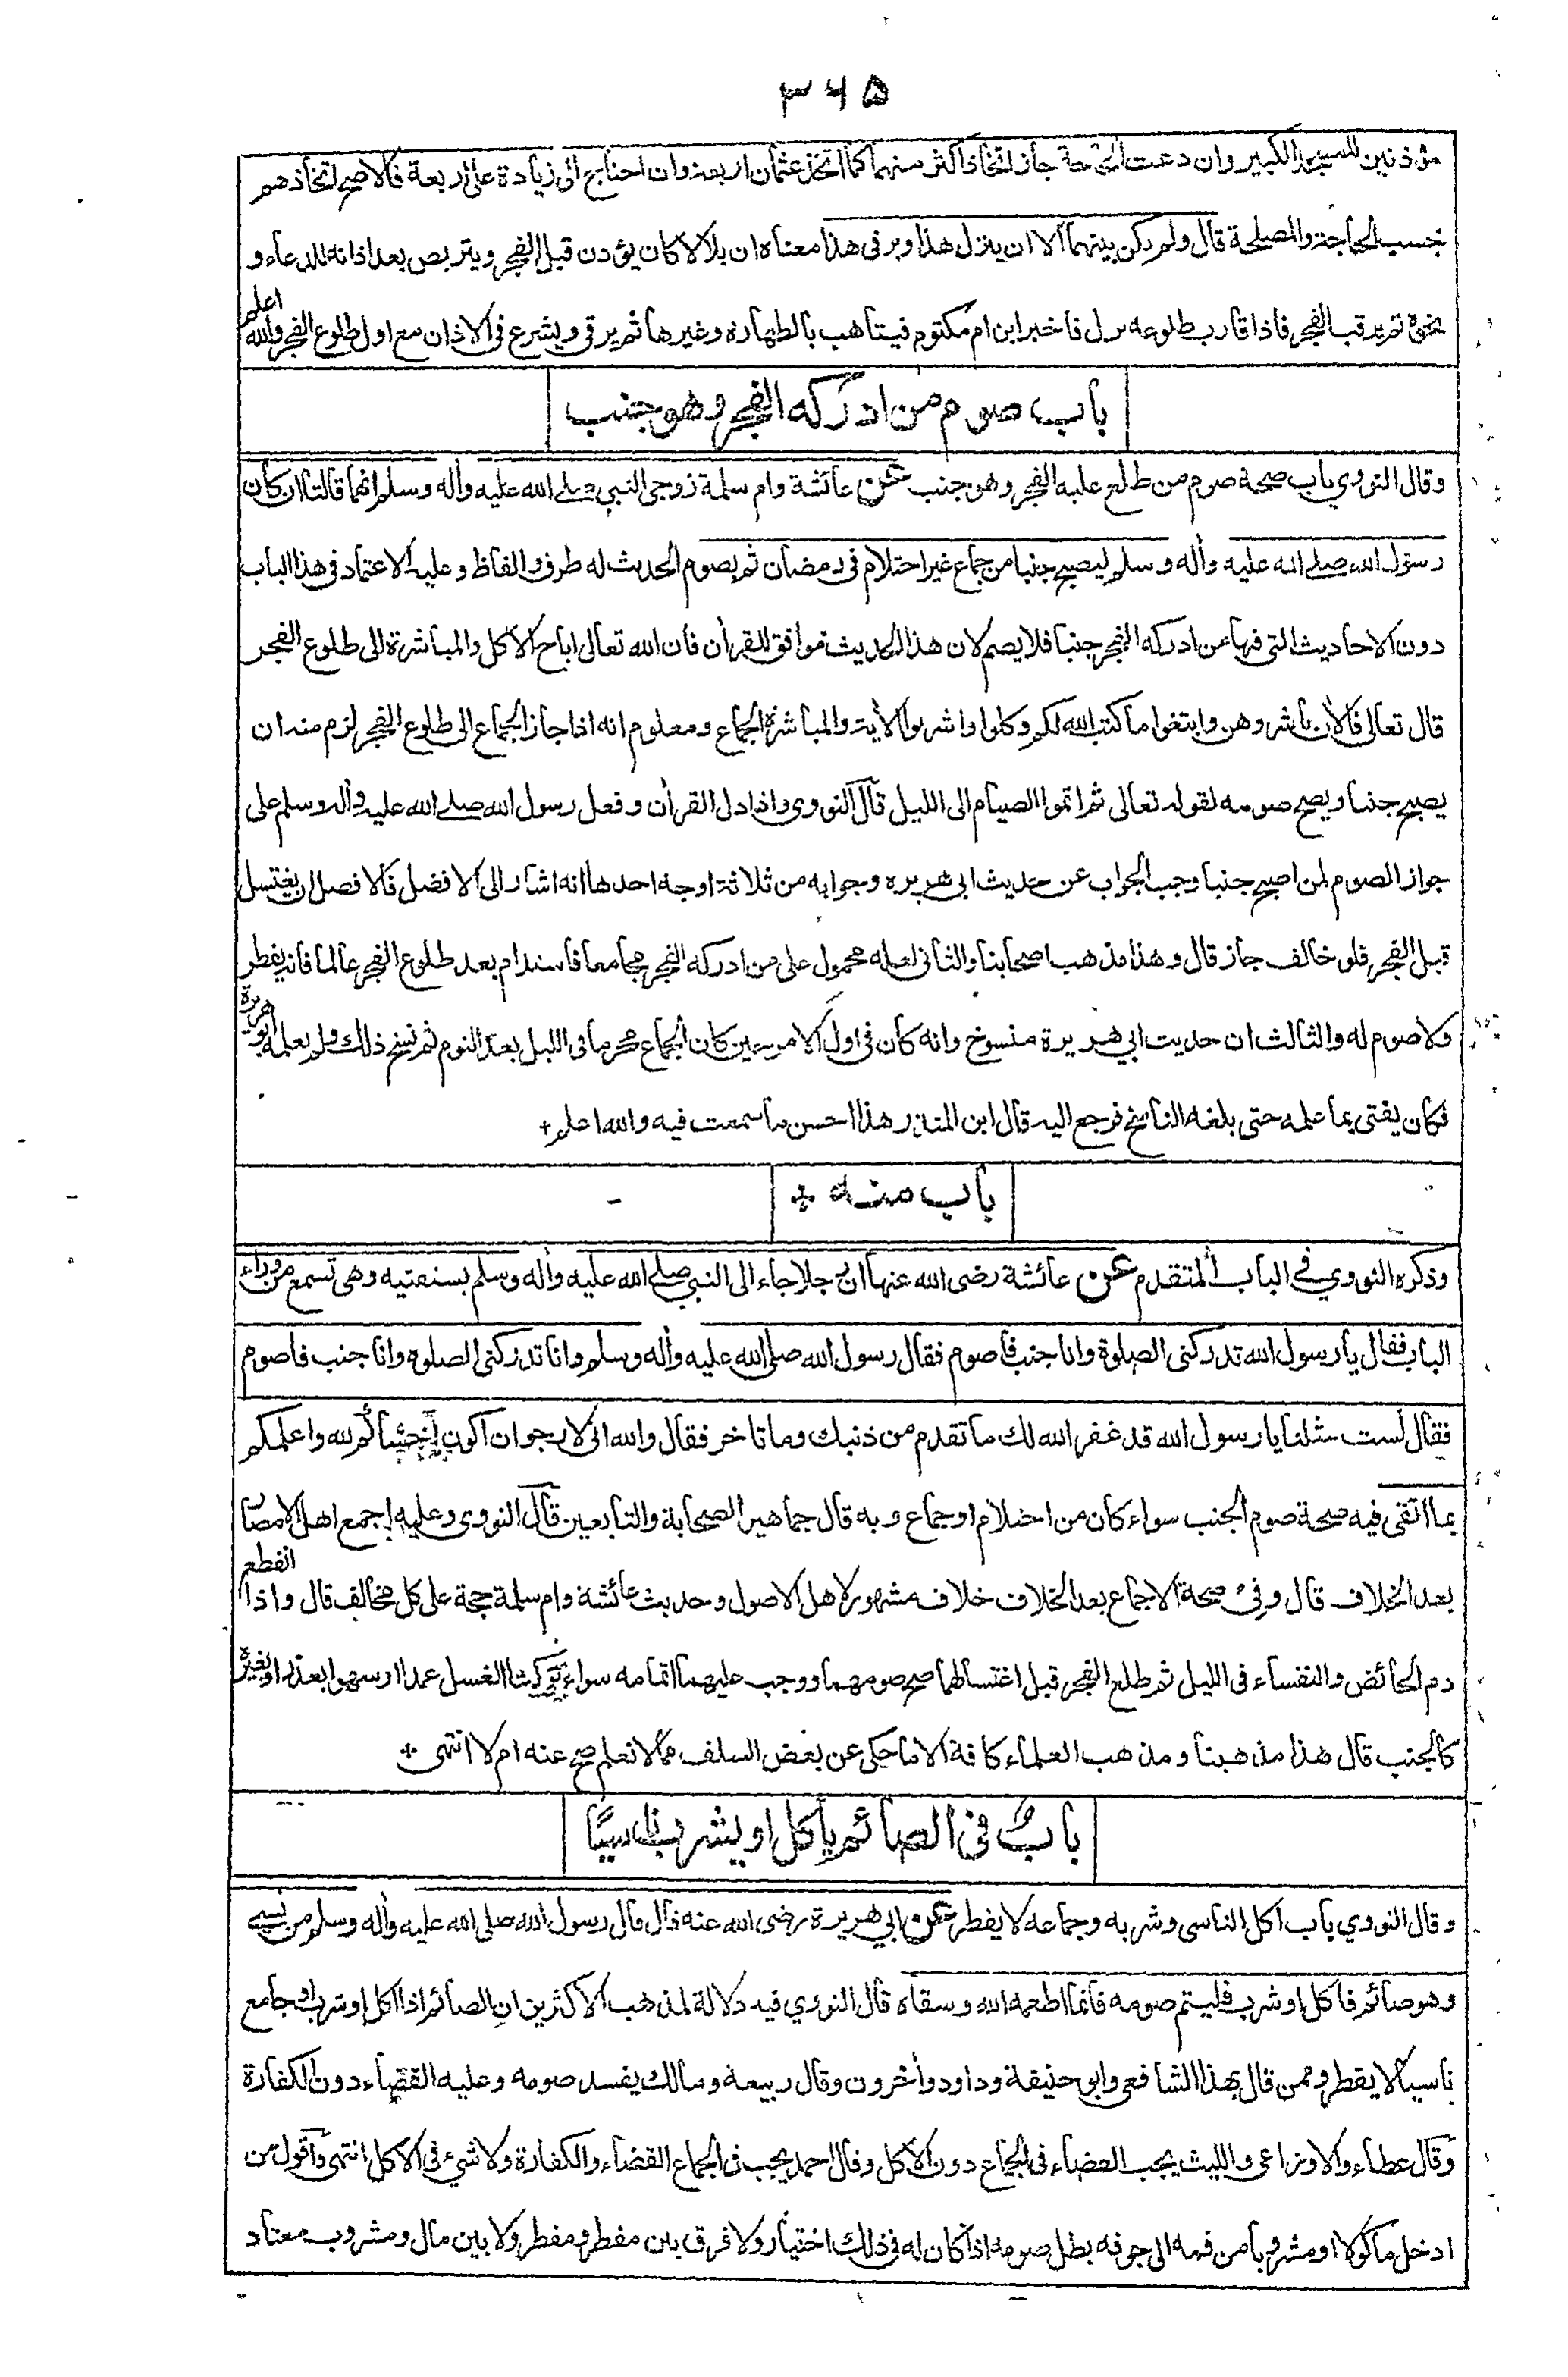 ۳۶۵
مؤذنين للمسجد الكبير وان دعت الحاجة جاز اتخاذ اكثر منهما كما اتخذ عثمان اربعة وان احتاج الى زيادة على اربعة فالاصح اتخاذهم
بحسب الحاجة والمصلحة قال ولم يكن بينهما الا ان ينزل هذا ويرقى هذا معناه ان بلالا كان يؤذن قبل الفجر ويتربص بعد اذانه للدعاء و
نحوه ثم يرقب الفجر فاذا قارب طلوعه نزل فاخبر ابن ام مكتوم فيتاهب بالطهارة وغيرها ثم يرقى ويشرع فى الاذان مع اول طلوع الفجر والله اعلم
باب صوم من ادركه الفجر وهو جنب
وقال النووي باب صحة صوم من طلع عليه الفجر وهو جنب عن عائشة وام سلمة زوجى النبي صلى الله عليه وأله وسلم انهما قالتا ان كان
رسول الله صلى الله عليه وأله وسلم ليصبح جنبا من جماع غير احتلام فى رمضان ثم يصوم الحديث له طرق والفاظ وعليه الاعتماد فى هذا الباب
دون الاحاديث التى فيها من ادركه الفجر جنبا فلا يصم لان هذا الحديث موافق للقرأن فان الله تعالى اباح الاكل والمباشرة الى طلوع الفجر
قال تعالى فالأن باشروهن وابتغوا ما كتب الله لكم وكلوا واشربوا الأية والمباشرة الجماع ومعلوم انه اذا جاز الجماع الى طلوع الفجر لزم منه ان
يصبح جنبا ويصح صومه لقوله تعالى ثم اتموا الصيام الى الليل قال النووى واذا دل القرأن وفعل رسول الله صلى الله عليه وأله وسلم على
جواز الصوم لمن اصبح جنبا وجب الجواب عن حديث ابى هريرة وجوابه من ثلاثة اوجه احدها انه اشار الى الافضل فالافضل ان يغتسل
قبل الفجر فلو خالف جاز قال وهذا مذهب اصحابنا والثانى لعله محمول على من ادركه الفجر مجامعا فاستدام بعد طلوع الفجر عالما فانه يفطر
ولا صوم له والثالث ان حديث ابي هريرة منسوخ وانه كان فى اول الامر حين كان الجماع محرما فى الليل بعد النوم ثم نسخ ذلك ولم يعلمه ابو هريرة
فكان يفتى بما علمه حتى بلغه الناسخ فرجع اليه قال ابن المنذر هذا احسن ما سمعت فيه والله اعلم+
باب منه +
وذكره النووي في الباب المتقدم عن عائشة رضى الله عنها ان رجلا جاء الى النبي صلى الله عليه وأله وسلم يستفتيه وهى تسمع من وراء
الباب فقال يا رسول الله تدركنى الصلوة وانا جنب فاصوم فقال رسول الله صلى الله عليه وأله وسلم وانا تدركنى الصلوة وانا جنب فاصوم
فقال لست مثلنا يا رسول الله قد غفر الله لك ما تقدم من ذنبك وما تاخر فقال والله انى لارجو ان اكون اخشاكم لله واعلمكم
بما اتقى فيه صحة صوم الجنب سواء كان من احتلام او جماع وبه قال جماهير الصحابة والتابعين قال النووى وعليه اجمع اهل الامصار
بعد الخلاف قال وفي صحة الاجماع بعد الخلاف خلاف مشهور لاهل الاصول وحديث عائشة وام سلمة حجة على كل مخالف قال واذا انقطع
دم الحائض والنفساء فى الليل ثم طلع الفجر قبل اغتسالهما صح صومهما ووجب عليهما اتمامه سواء تركتا الغسل عمدا او سهوا بعذر او بغيره
كالجنب قال هذا مذهبنا ومذهب العلماء كافة الا ما حكى عن بعض السلف مما لا نعلم صح عنه ام لا انتهى +
بابٌ فى الصائم يأكل او يشرب ناسيًا
وقال النووي باب اكل الناسى وشربه وجماعه لا يفطر عن ابي هريرة رضى الله عنه قال قال رسول الله صلى الله عليه وأله وسلم من نسى
وهو صائم فاكل او شرب فليتم صومه فانما اطعمه الله وسقاه قال النووي فيه دلالة لمذهب الاكثرين ان الصائم اذا اكل او شرب او جامع
ناسيا لا يفطر وممن قال بهذا الشافعى وابو حنيفة وداود وأخرون وقال ربيعة ومالك يفسد صومه وعليه القضاء دون الكفارة
وقال عطاء والاوزاعى والليث يجب القضاء فى الجماع دون الاكل وقال احمد يجب فى الجماع القضاء والكفارة ولا شيء فى الاكل انتهى واقول من
ادخل ماكولا او مشروبا من فمه الى جوفه بطل صومه اذا كان له فى ذلك اختيار ولا فرق بين مفطر ومفطر ولا بين مال ومشروب معتاد